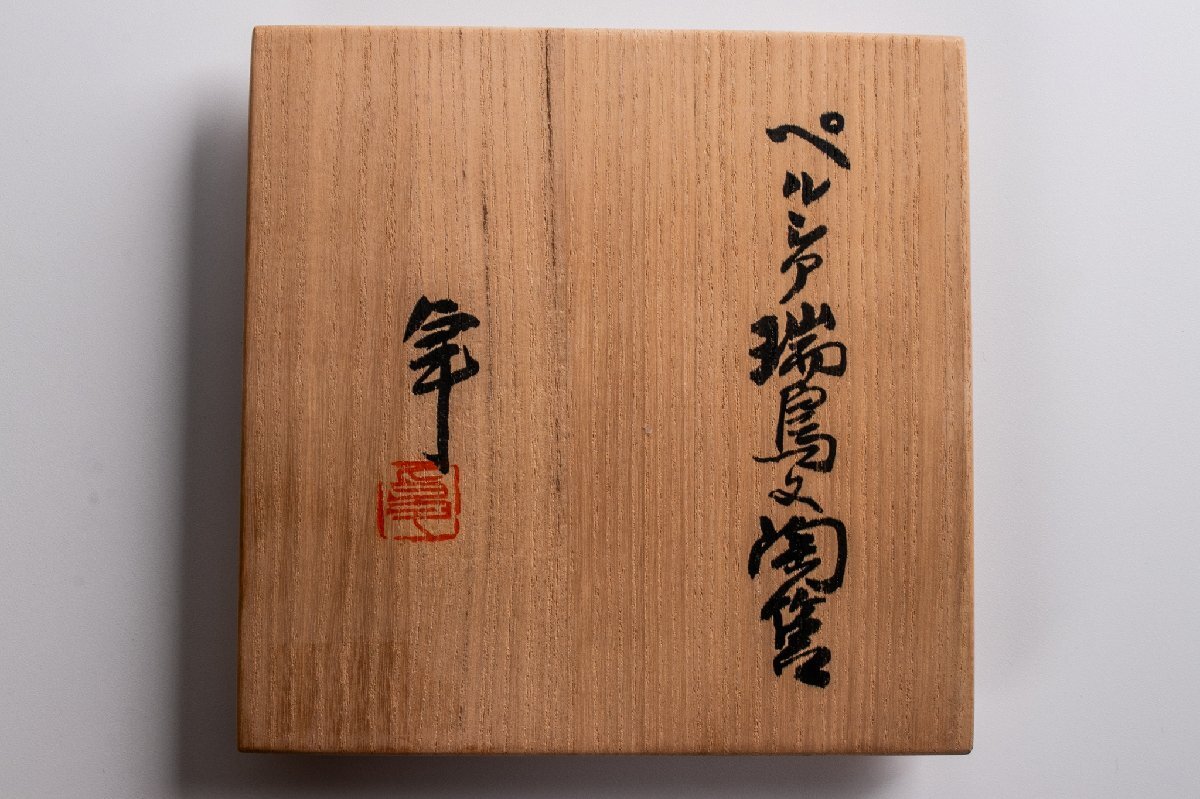 ペルシア瑞鳥文陶筥